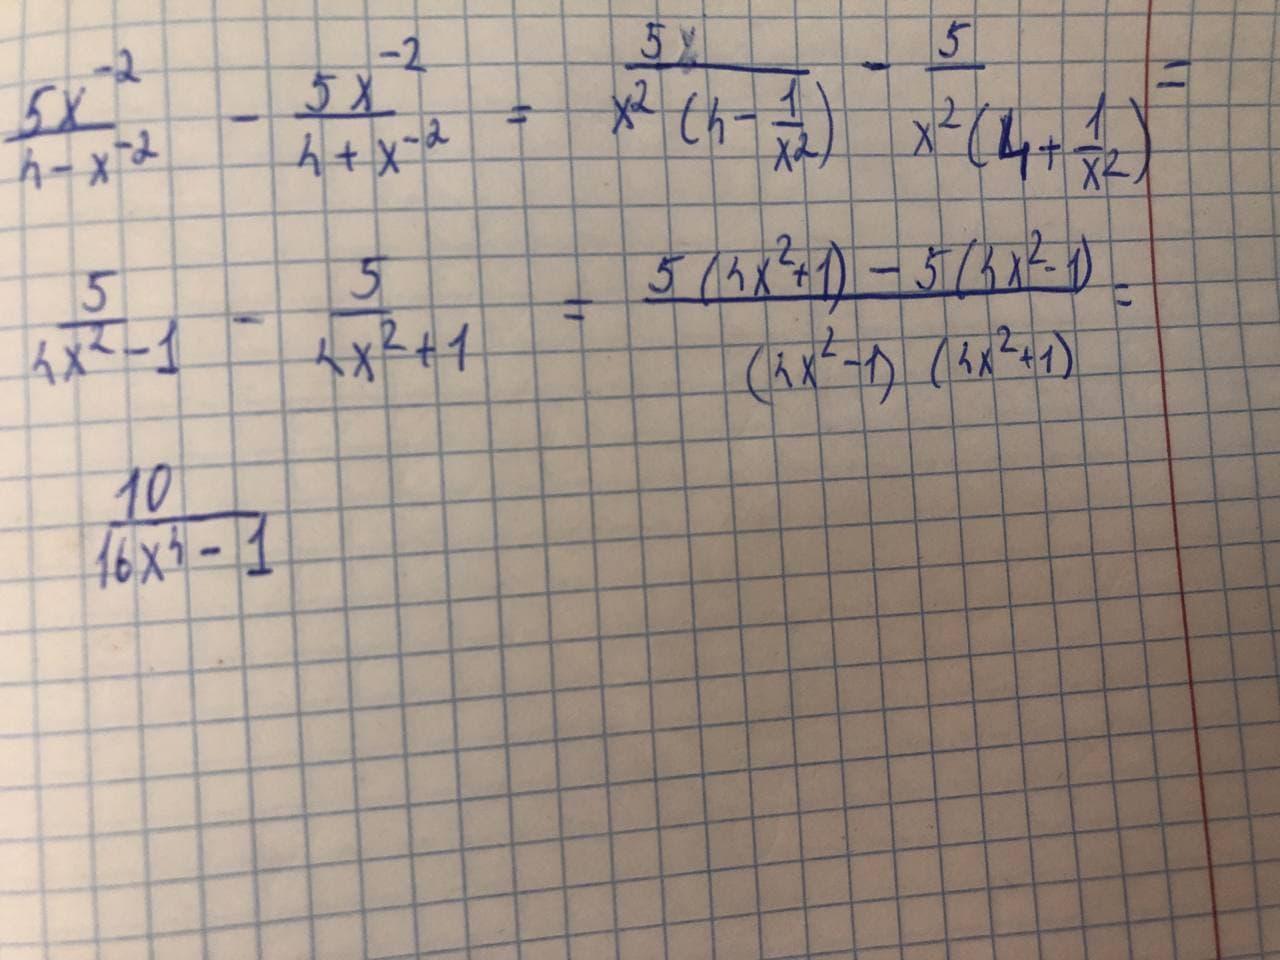 5x⁻²/(4 - x⁻²) - 5x⁻²/(4 + x⁻²) = 5/(x²(4 - 1/x²)) - 5/(x²(4 + 1/x²)) =
5/(4x² - 1) - 5/(4x² + 1) = (5(4x²+1) - 5(4x²-1))/((4x²-1)(4x²+1)) =
10/(16x⁴ - 1)